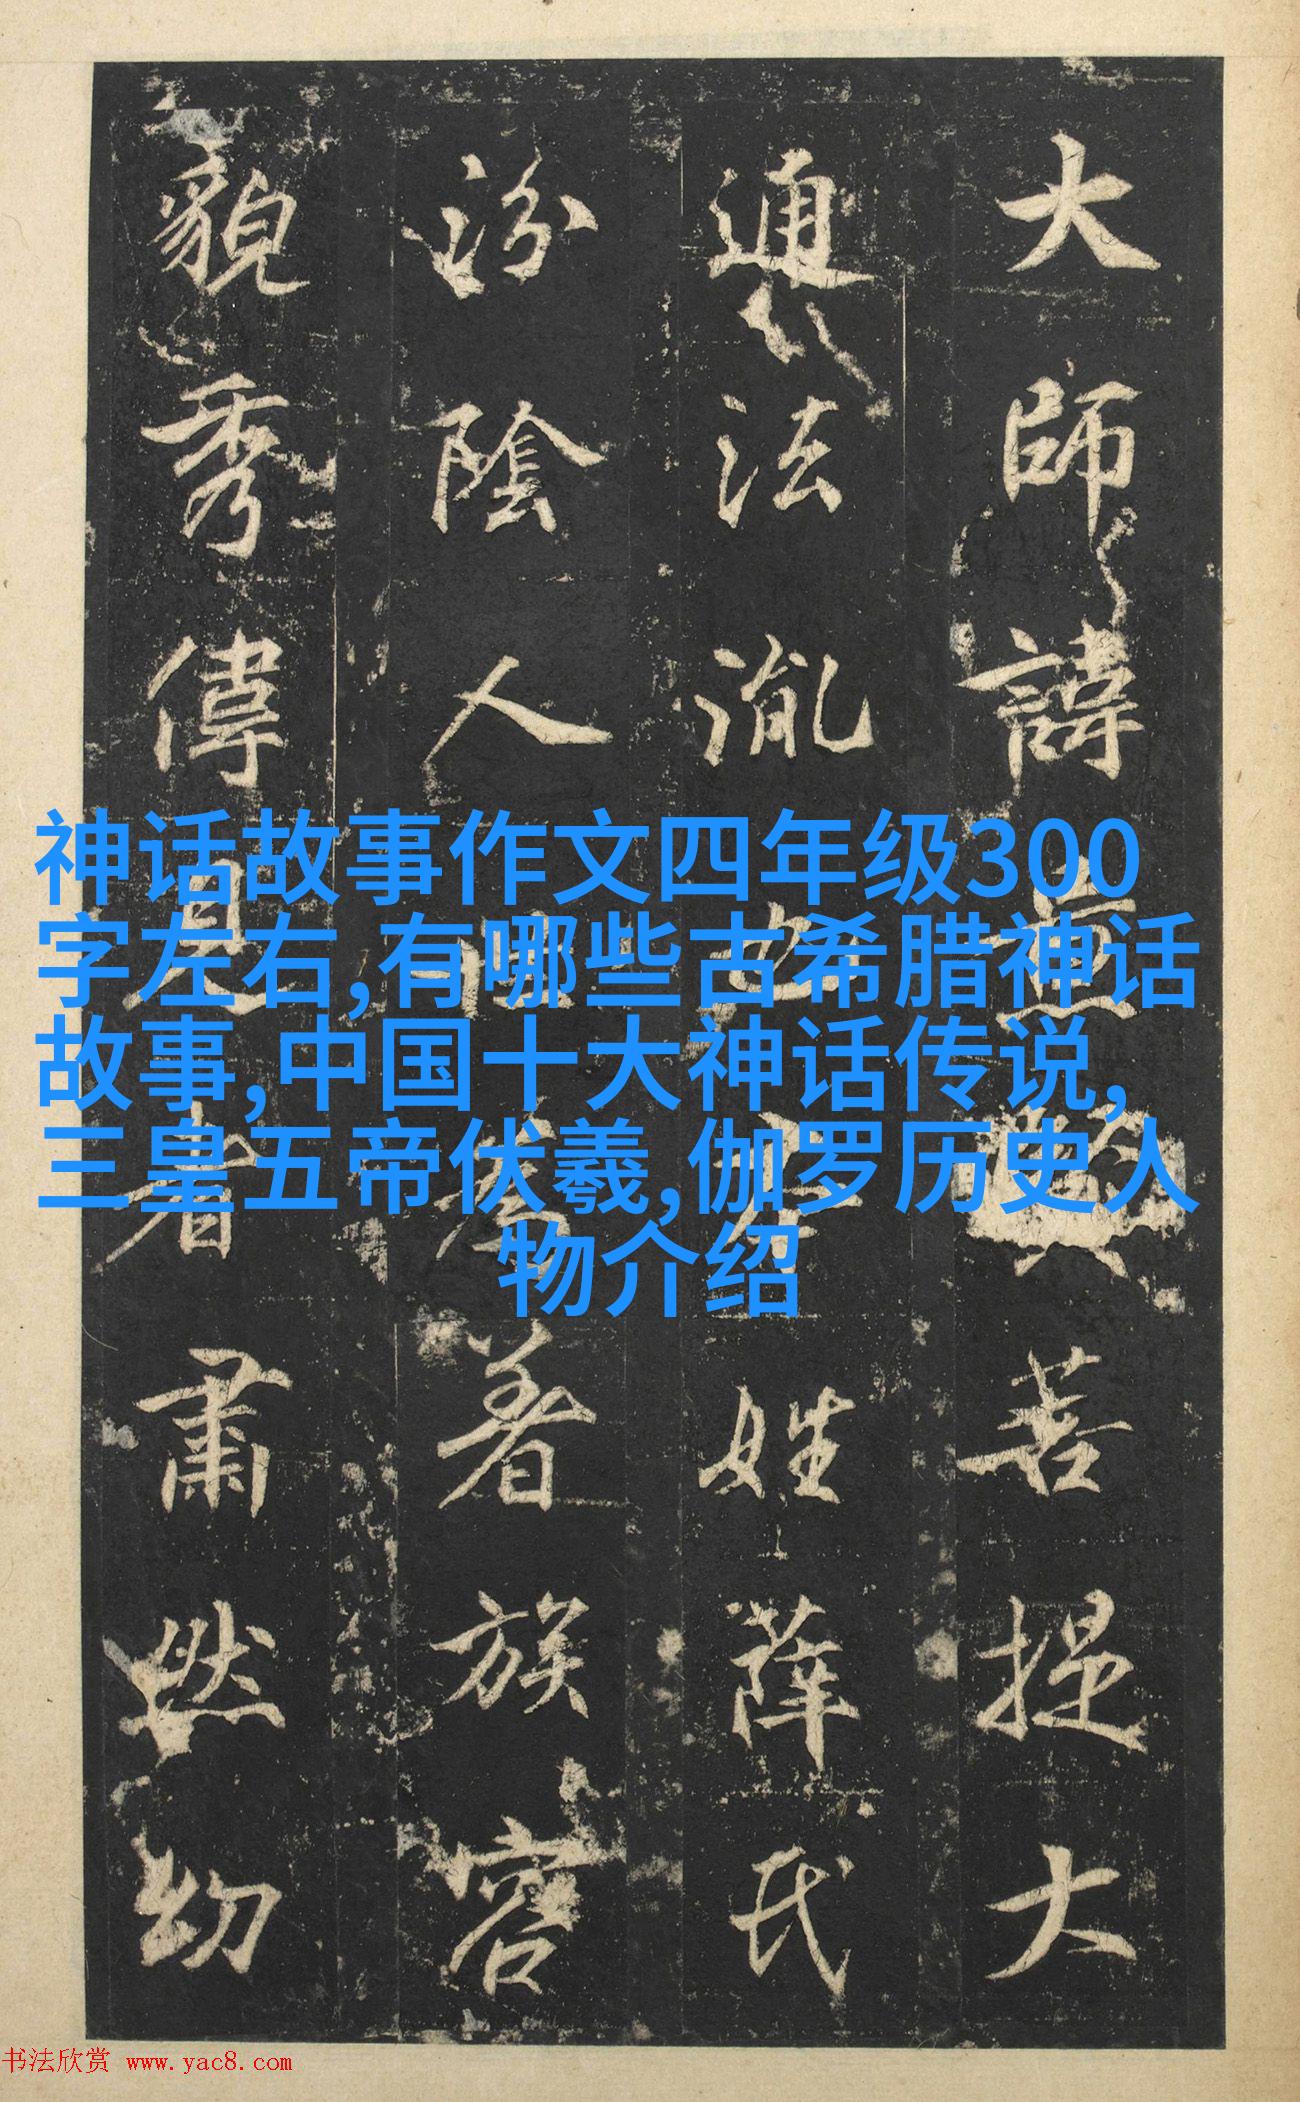 大師諱菩提大
通法胤也姓薛氏
汾陰人著族容
貌秀偉見者肅然幼
神话故事作文四年级300
字左右,有哪些古希腊神话
故事,中国十大神话传说,
三皇五帝伏羲,伽罗历史人
物介绍
书法欣赏 www.yac8.com